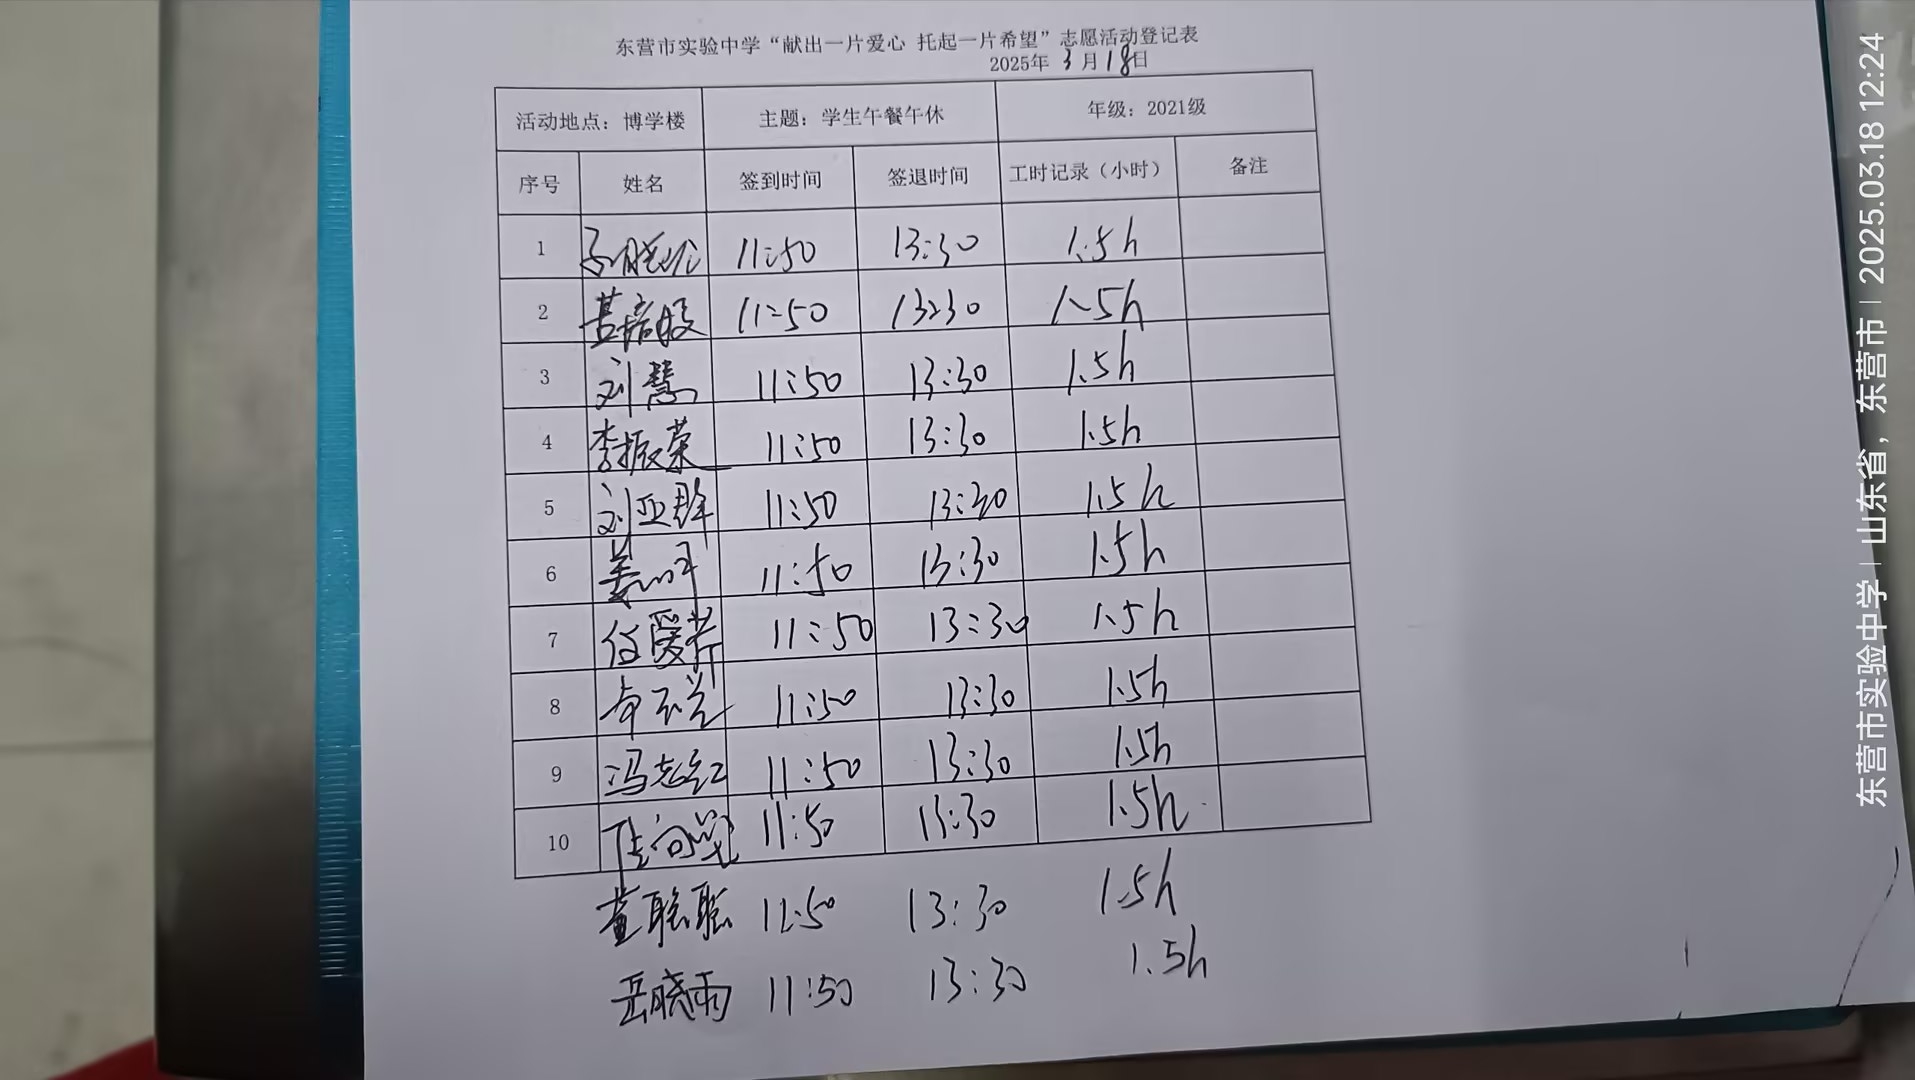 东营市实验中学“献出一片爱心 托起一片希望”志愿活动登记表
2025年 3月18日
活动地点：博学楼 主题：学生午餐午休 年级：2021级
序号 姓名 签到时间 签退时间 工时记录（小时） 备注
1 11:50 13:30 1.5h
2 11:50 13:30 1.5h
3 刘慧 11:50 13:30 1.5h
4 李振荣 11:50 13:30 1.5h
5 刘亚群 11:50 13:30 1.5h
6 11:50 13:30 1.5h
7 任爱芹 11:50 13:30 1.5h
8 11:50 13:30 1.5h
9 冯志红 11:50 13:30 1.5h
10 11:50 13:30 1.5h
董聪聪 11:50 13:30 1.5h
岳晓雨 11:50 13:30 1.5h
东营市实验中学 | 山东省，东营市 | 2025.03.18 12:24